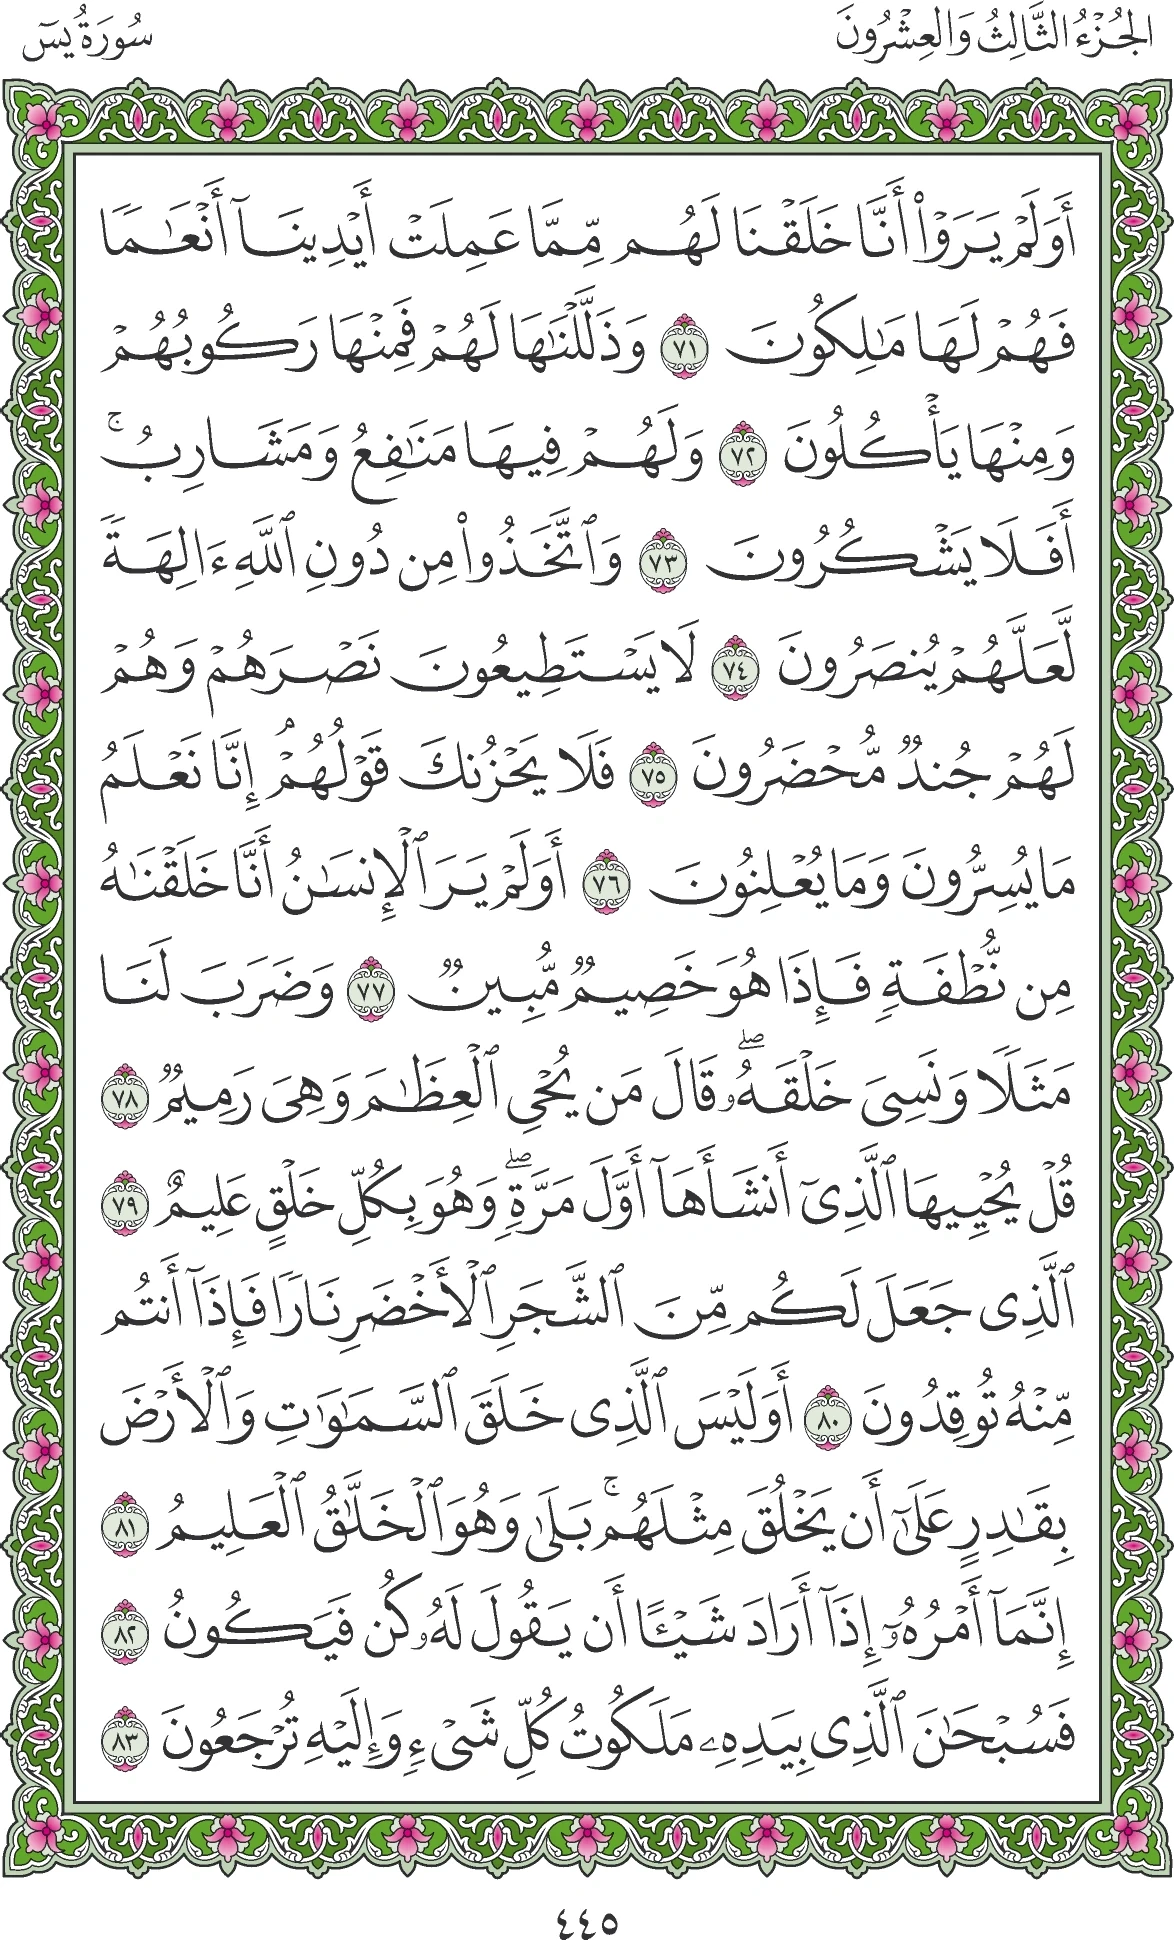 الجُزْءُ الثَّالِثُ وَالعِشْرُونَ
سُورَةُ يسٓ
أَوَلَمْ يَرَوْا۟ أَنَّا خَلَقْنَا لَهُم مِّمَّا عَمِلَتْ أَيْدِينَآ أَنْعَـٰمًا
فَهُمْ لَهَا مَـٰلِكُونَ ٧١ وَذَلَّلْنَـٰهَا لَهُمْ فَمِنْهَا رَكُوبُهُمْ
وَمِنْهَا يَأْكُلُونَ ٧٢ وَلَهُمْ فِيهَا مَنَـٰفِعُ وَمَشَارِبُ ۚ
أَفَلَا يَشْكُرُونَ ٧٣ وَٱتَّخَذُوا۟ مِن دُونِ ٱللَّهِ ءَالِهَةً
لَّعَلَّهُمْ يُنصَرُونَ ٧٤ لَا يَسْتَطِيعُونَ نَصْرَهُمْ وَهُمْ
لَهُمْ جُندٌ مُّحْضَرُونَ ٧٥ فَلَا يَحْزُنكَ قَوْلُهُمْ ۘ إِنَّا نَعْلَمُ
مَا يُسِرُّونَ وَمَا يُعْلِنُونَ ٧٦ أَوَلَمْ يَرَ ٱلْإِنسَـٰنُ أَنَّا خَلَقْنَـٰهُ
مِن نُّطْفَةٍ فَإِذَا هُوَ خَصِيمٌ مُّبِينٌ ٧٧ وَضَرَبَ لَنَا
مَثَلًا وَنَسِىَ خَلْقَهُۥ ۖ قَالَ مَن يُحْىِ ٱلْعِظَـٰمَ وَهِىَ رَمِيمٌ ٧٨
قُلْ يُحْيِيهَا ٱلَّذِىٓ أَنشَأَهَآ أَوَّلَ مَرَّةٍ ۖ وَهُوَ بِكُلِّ خَلْقٍ عَلِيمٌ ٧٩
ٱلَّذِى جَعَلَ لَكُم مِّنَ ٱلشَّجَرِ ٱلْأَخْضَرِ نَارًا فَإِذَآ أَنتُم
مِّنْهُ تُوقِدُونَ ٨٠ أَوَلَيْسَ ٱلَّذِى خَلَقَ ٱلسَّمَـٰوَٰتِ وَٱلْأَرْضَ
بِقَـٰدِرٍ عَلَىٰٓ أَن يَخْلُقَ مِثْلَهُم ۚ بَلَىٰ وَهُوَ ٱلْخَلَّـٰقُ ٱلْعَلِيمُ ٨١
إِنَّمَآ أَمْرُهُۥٓ إِذَآ أَرَادَ شَيْـًٔا أَن يَقُولَ لَهُۥ كُن فَيَكُونُ ٨٢
فَسُبْحَـٰنَ ٱلَّذِى بِيَدِهِۦ مَلَكُوتُ كُلِّ شَىْءٍ وَإِلَيْهِ تُرْجَعُونَ ٨٣
٤٤٥